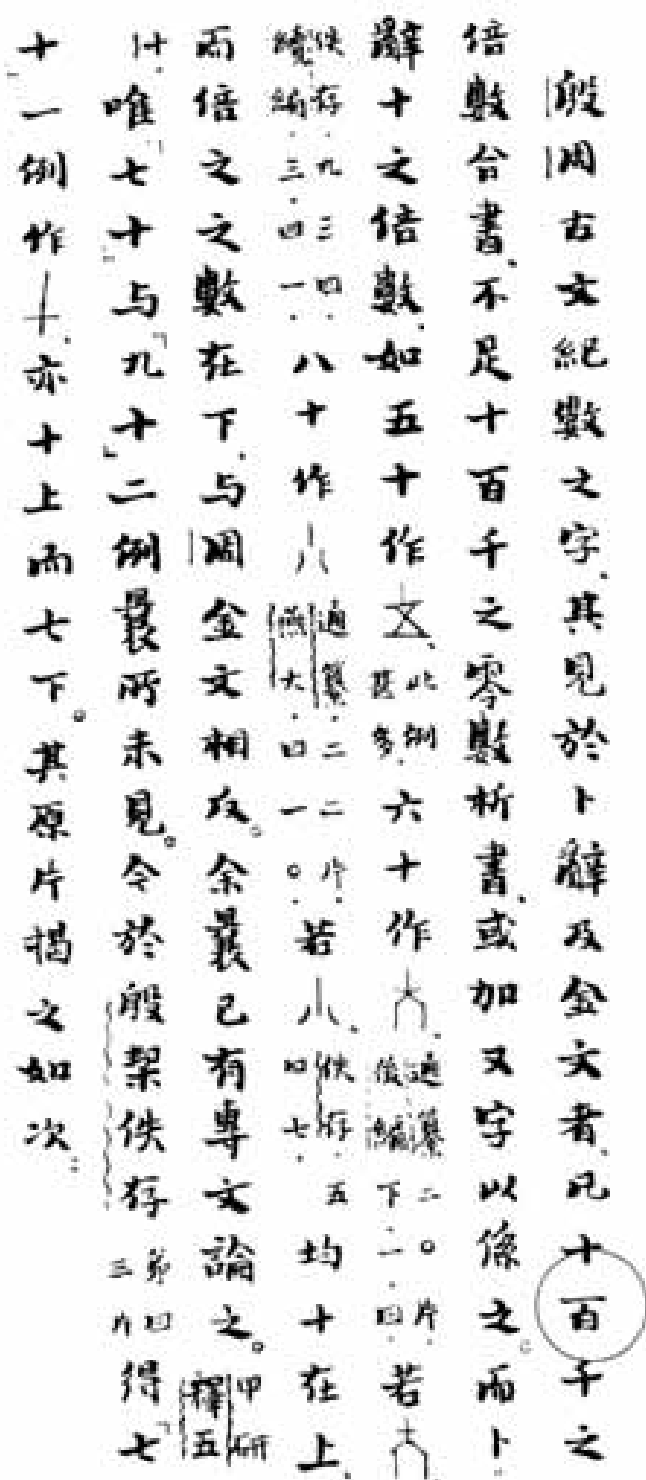 殷周古文紀數之字、其見於卜辭及金文者、凡十百千之
倍數合書、不足十百千之零數析書、或加又字以係之。而卜
辭十之倍數、如五十作、此例甚多、六十作、通纂二〇片後編下一·四·若
佚存九三四·續編三·四一·八十作通纂·二二片·燕大·四一〇·若、佚存·五四七·均十在上、
而倍之之數在下、與周金文相反。余曩已有專文論之。甲研釋五
十、唯「七十」與「九十」二例曩所未見。今於殷契佚存第四三片得「七
十」一例作、亦十上而七下。其原片揭之如次：